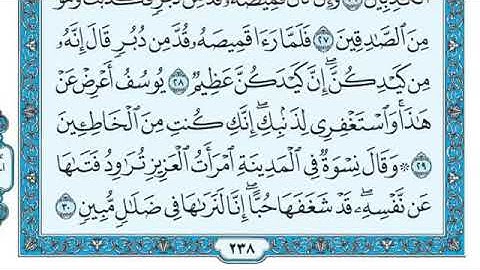 مِنَ ٱلصَّٰدِقِينَ ۝٢٧ فَلَمَّا رَءَا قَمِيصَهُۥ قُدَّ مِن دُبُرٍ قَالَ إِنَّهُۥ
مِن كَيْدِكُنَّۖ إِنَّ كَيْدَكُنَّ عَظِيمٌ ۝٢٨ يُوسُفُ أَعْرِضْ عَنْ
هَٰذَاۚ وَٱسْتَغْفِرِى لِذَنۢبِكِۖ إِنَّكِ كُنتِ مِنَ ٱلْخَاطِـِٔينَ
۝٢٩ ۞ وَقَالَ نِسْوَةٌ فِى ٱلْمَدِينَةِ ٱمْرَأَتُ ٱلْعَزِيزِ تُرَٰوِدُ فَتَىٰهَا
عَن نَّفْسِهِۦۖ قَدْ شَغَفَهَا حُبًّاۖ إِنَّا لَنَرَىٰهَا فِى ضَلَٰلٍ مُّبِينٍ ۝٣٠
٢٣٨